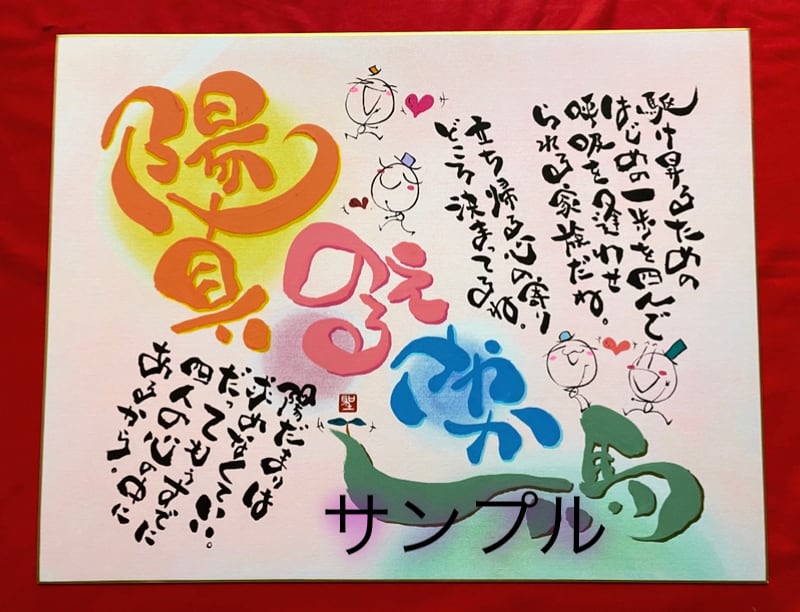 駆け昇るための
はじめの一歩を四人で
呼吸を合わせ
られる家族だね。
立ち帰る心の寄り
どころ決まってるね。
陽真
のえる
さやか
一馬
陽だまりは
求めなくていい。
だってもうすでに
四人の心の中に
あるから。
聖
サンプル